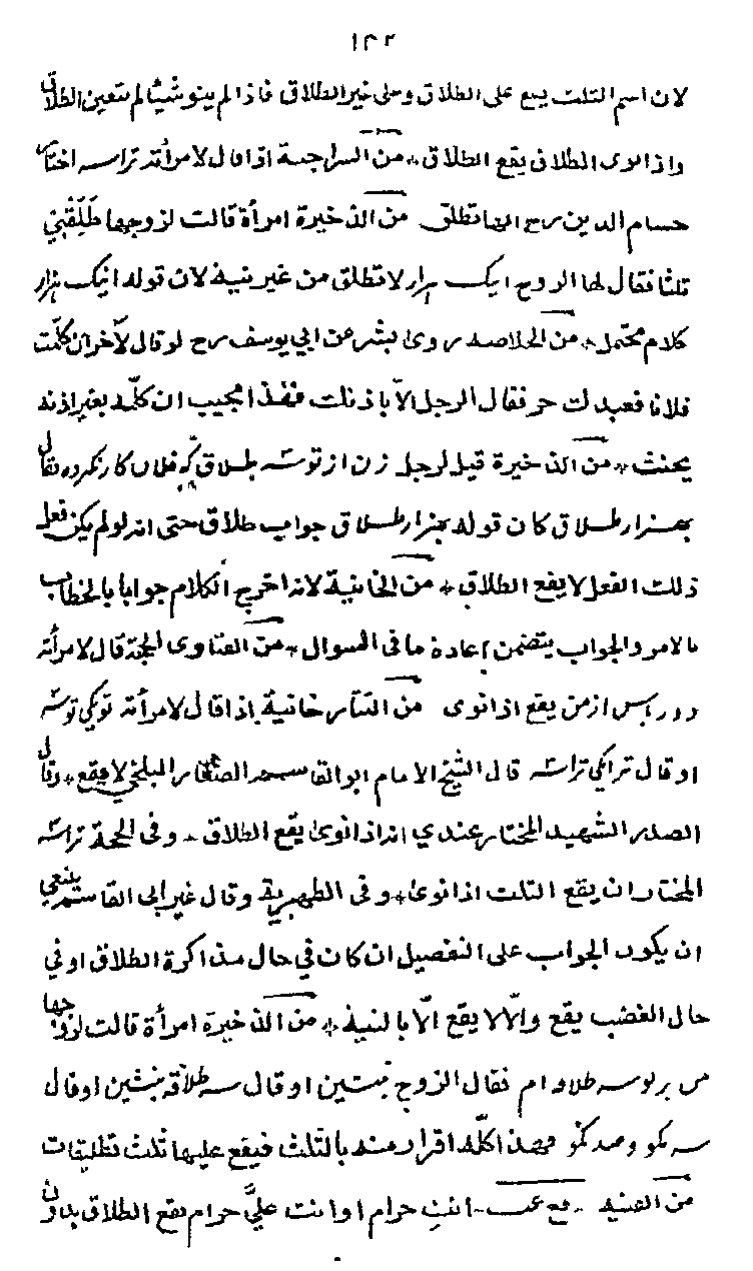 ١٣٢
لان اسم الثلث يقع على الطلاق وعلى غير الطلاق فاذا لم ينو شيئا لم يتعين الطلاق
واذا نوى الطلاق يقع الطلاق * من السراجية اذا قال لامرأته تراسه اختار
حسام الدين رح انها تطلق من الذخيرة امرأة قالت لزوجها طَلِّقْنِي
ثلثا فقال لها الزوج اينك هزار لا تطلق من غير نية لان قوله اينك هزار
كلام محتمل * من الخلاصه روى بشر عن ابي يوسف رح لو قال لآخر ان كلّمت
فلانا فعبدك حر فقال الرجل الّا باذنك فهذا مجيب ان كلّمه بغير اذنه
يحنث * من الذخيرة قيل لرجل زن از تو سه طلاق كه فلان كار نكرده فقال
بهزار طلاق كان قوله بهزار طلاق جواب طلاق حتى انه لو لم يكن فعل
ذلك الفعل لا يقع الطلاق * من الخانية لانه اخرج الكلام جوابا بالخطاب
بالامر والجواب يتضمن اعادة ما في السوال * من الفتاوى الحجة قال لامرأته
دور باش از من يقع اذا نوى من التتارخانية اذا قال لامرأته تو يكي تو سه
او قال ترا يكي ترا سه قال الشيخ الامام ابو القاسم الصفار البلخي لا يقع * وقال
الصدر الشهيد المختار عندي انه اذا نوى يقع الطلاق * وفى الحجة ترا سه
المختار ان يقع الثلث اذا نوى * وفى الظهيرية وقال غير ابى القاسم ينبغي
ان يكون الجواب على التفصيل ان كان في حال مذاكرة الطلاق او في
حال الغضب يقع والّا لا يقع الّا بالنية * من الذخيرة امرأة قالت لزوجها
من بر تو سه طلاقه ام فقال الزوج بيشين او قال سه طلاقه بيشين او قال
سه مكو وصد كو فهذا كلّه اقرار منه بالثلث فيقع عليها ثلث تطليقات
من القنيه - انتِ حرام او انت عليَّ حرام يقع الطلاق بدون